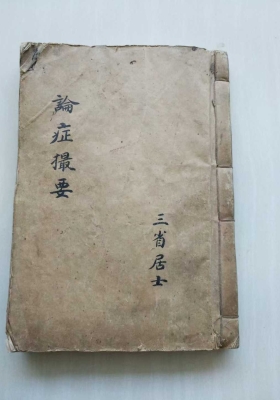 論症撮要
三省居士